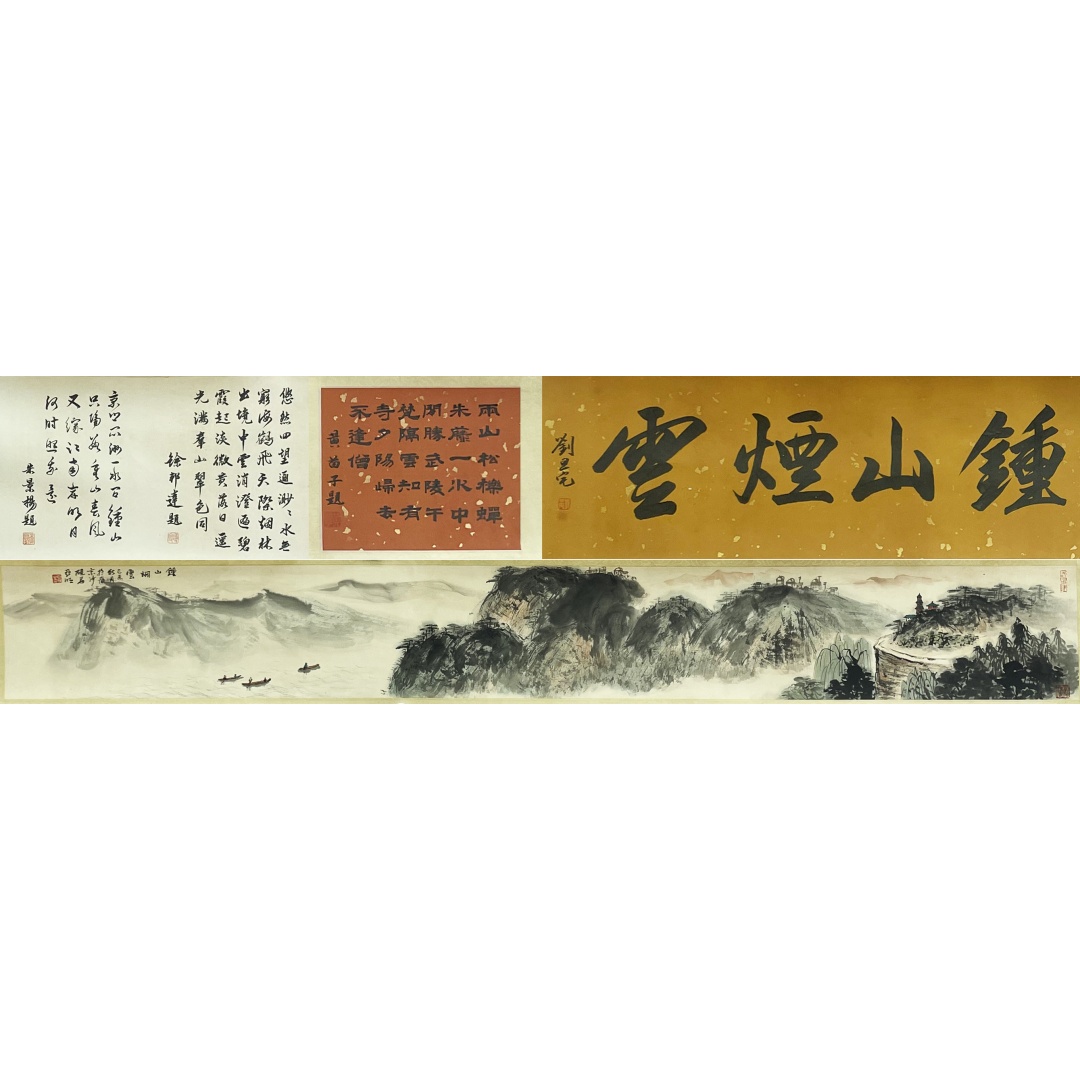 鍾山煙雲
劉旦宅
兩山松櫟蟬
朱藤一水中
間勝武陵午
梵隔雲知有
寺夕陽歸去
不逢僧
黃苗子題
悠然四望通渺〻水無
窮海鶴飛天際烟林
出境中雲消澄遍碧
霞起淡微黃落日還
光滿羣山翠色同
徐邦達題
京口瓜洲一水間鍾山
只隔數重山春風
又綠江南岸明月
何時照我還
米景揚題
鍾山烟雲
乙亥
亞明